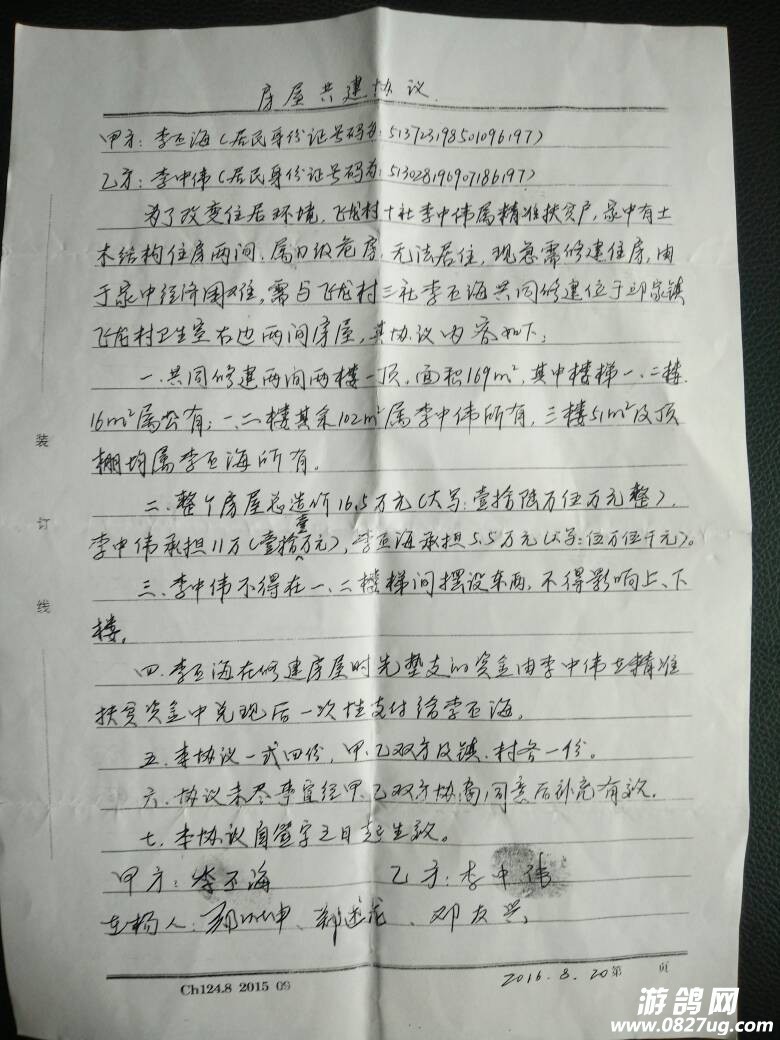 房屋共建协议
甲方：李丕海（居民身份证号码为：513723198501096197）
乙方：李中伟（居民身份证号码为：513028196907186197）
为了改变住居环境，飞龙村十社李中伟属精准扶贫户，家中有土
木结构住房两间，属D级危房，无法居住，现急需修建住房，由
于家中经济困难，需与飞龙村三社李丕海共同修建位于邱家镇
飞龙村卫生室右边两间房屋，其协议内容如下：
一、共同修建两间两楼一顶，面积169m²，其中楼梯一、二楼
16m²属公有；一、二楼其余102m²属李中伟所有，三楼51m²及顶
棚均属李丕海所有。
二、整个房屋总造价16.5万元（大写：壹拾陆万伍万元整），
李中伟承担11万（壹拾壹万元），李丕海承担5.5万元（大写：伍万伍千元）。
三、李中伟不得在一、二楼梯间摆设东西，不得影响上、下
楼。
四、李丕海在修建房屋时先垫支的资金由李中伟在精准
扶贫资金中兑现后一次性支付给李丕海。
五、本协议一式四份，甲、乙双方及镇、村各一份。
六、协议未尽事宜经甲、乙双方协商，同意后补充有效。
七、本协议自签字之日起生效。
甲方：李丕海 乙方：李中伟
在场人： 邓友兴
2016.8.20 第 页
Ch124.8 2015 09
装
订
线
游鸽网
www.0827ug.com